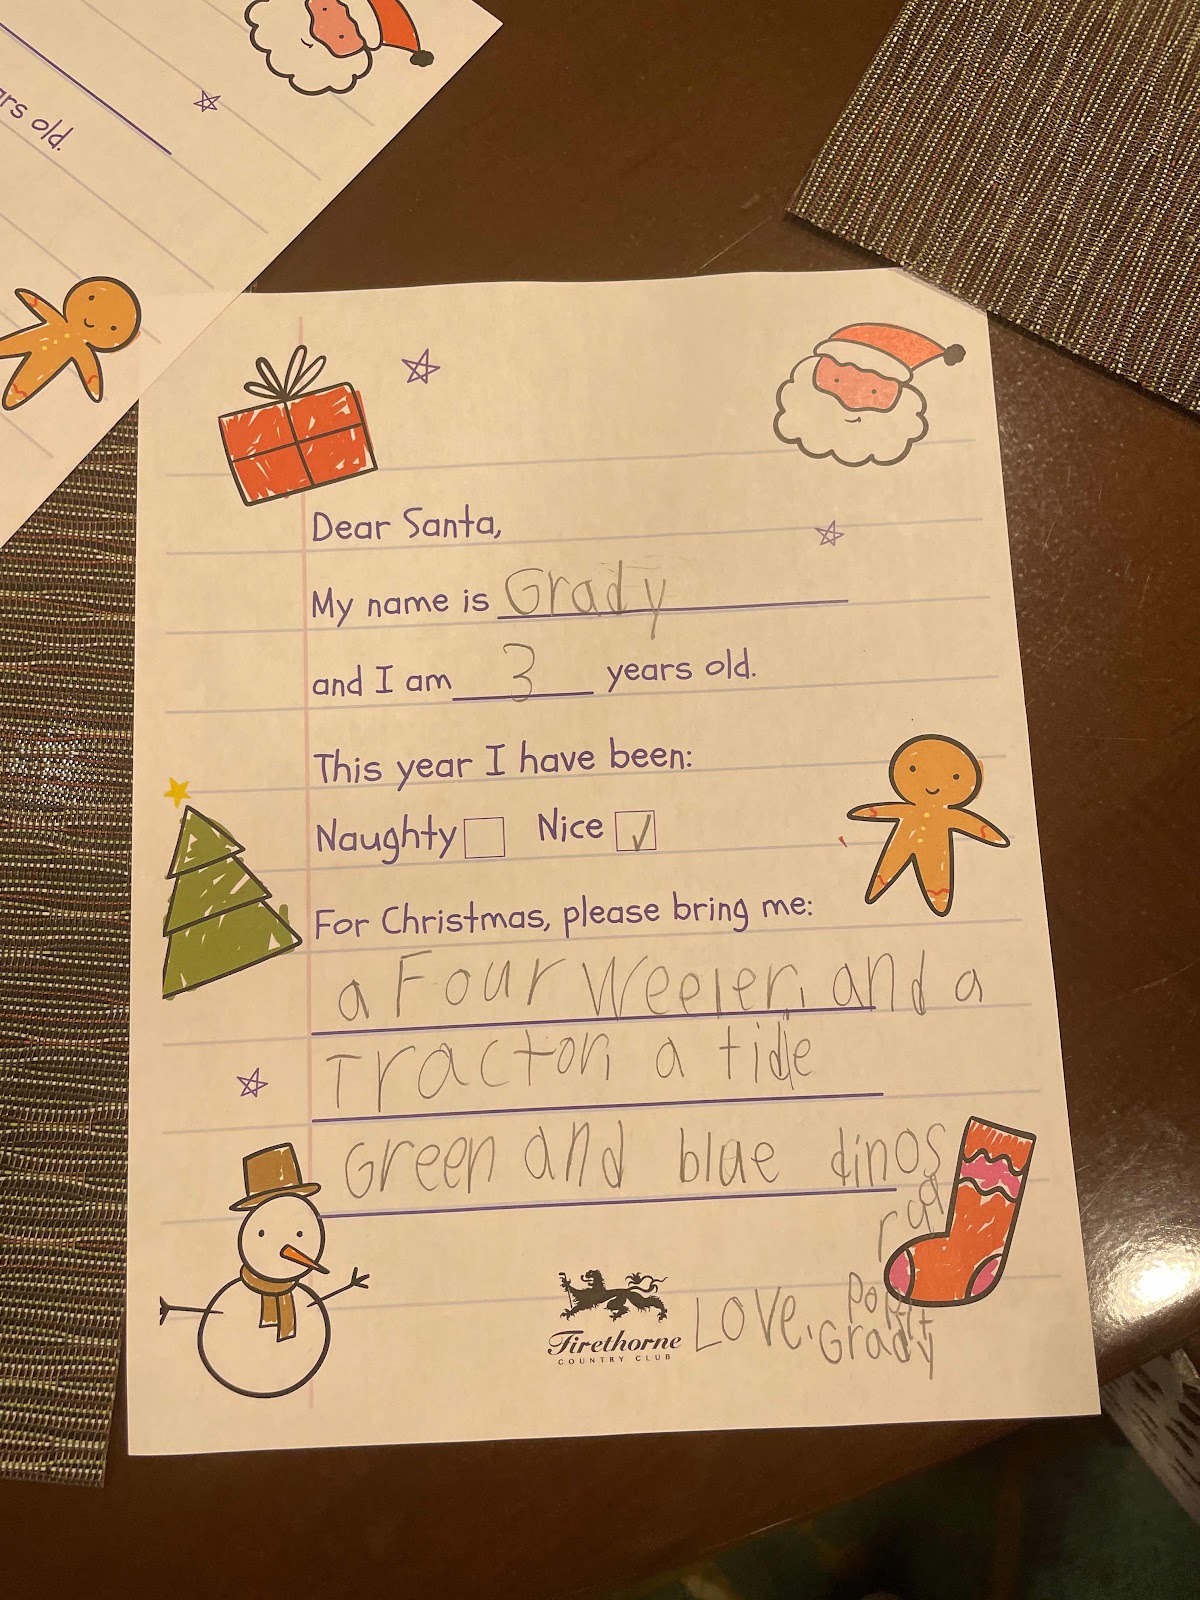 ars old.
Dear Santa,
My name is Grady
and I am 3 years old.
This year I have been:
Naughty Nice ✓
For Christmas, please bring me:
a Four Weeler, and a
Tractor, a tide
Green and blue dinos
Firethorne
COUNTRY CLUB
Love,
Grady